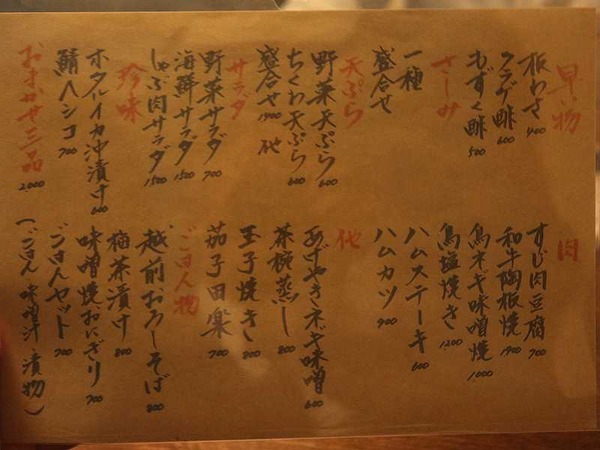 早い物
板わさ 400
クラゲ酢 600
もずく酢 500
さしみ
一種
盛合せ
天ぷら
野菜天ぷら 600
ちくわ天ぷら 600
盛合せ 1900 他
サラダ
野菜サラダ 700
海鮮サラダ 1500
しゃぶ肉サラダ 1500
珍味
ホタルイカ沖漬け 600
鯖ヘシコ 700
おまかせ三品 2,000
肉
すじ肉豆腐 700
和牛陶板焼 1900
鳥ネギ味噌焼 1000
鳥塩焼き 1200
ハムステーキ 600
ハムカツ 900
他
あげやきネギ味噌 600
茶椀蒸し 800
玉子焼き 800
茄子田楽 700
ごはん物
越前おろしそば 800
梅茶漬け 800
味噌焼おにぎり 700
ごはんセット 700
(ごはん 味噌汁 漬物)